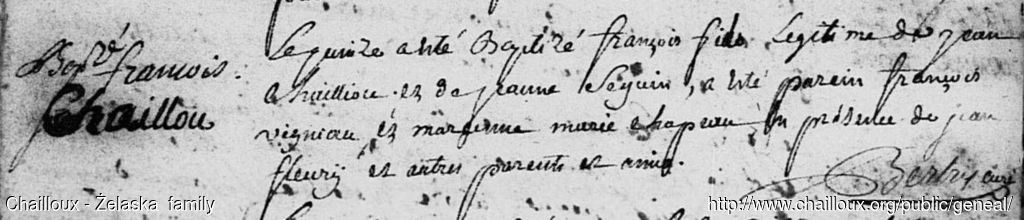 Bap.e françois
Chaillou
Le quinze a esté Baptizé françois fils Legitime de jean
Chailliou et de jeanne Seguin, a esté parein françois
vigneau et mareinne marie chapeau, En présence de jean
fleury et autres parents et amis.
curé
Chailloux - Żelaska family
http://www.chailloux.org/public/geneal/